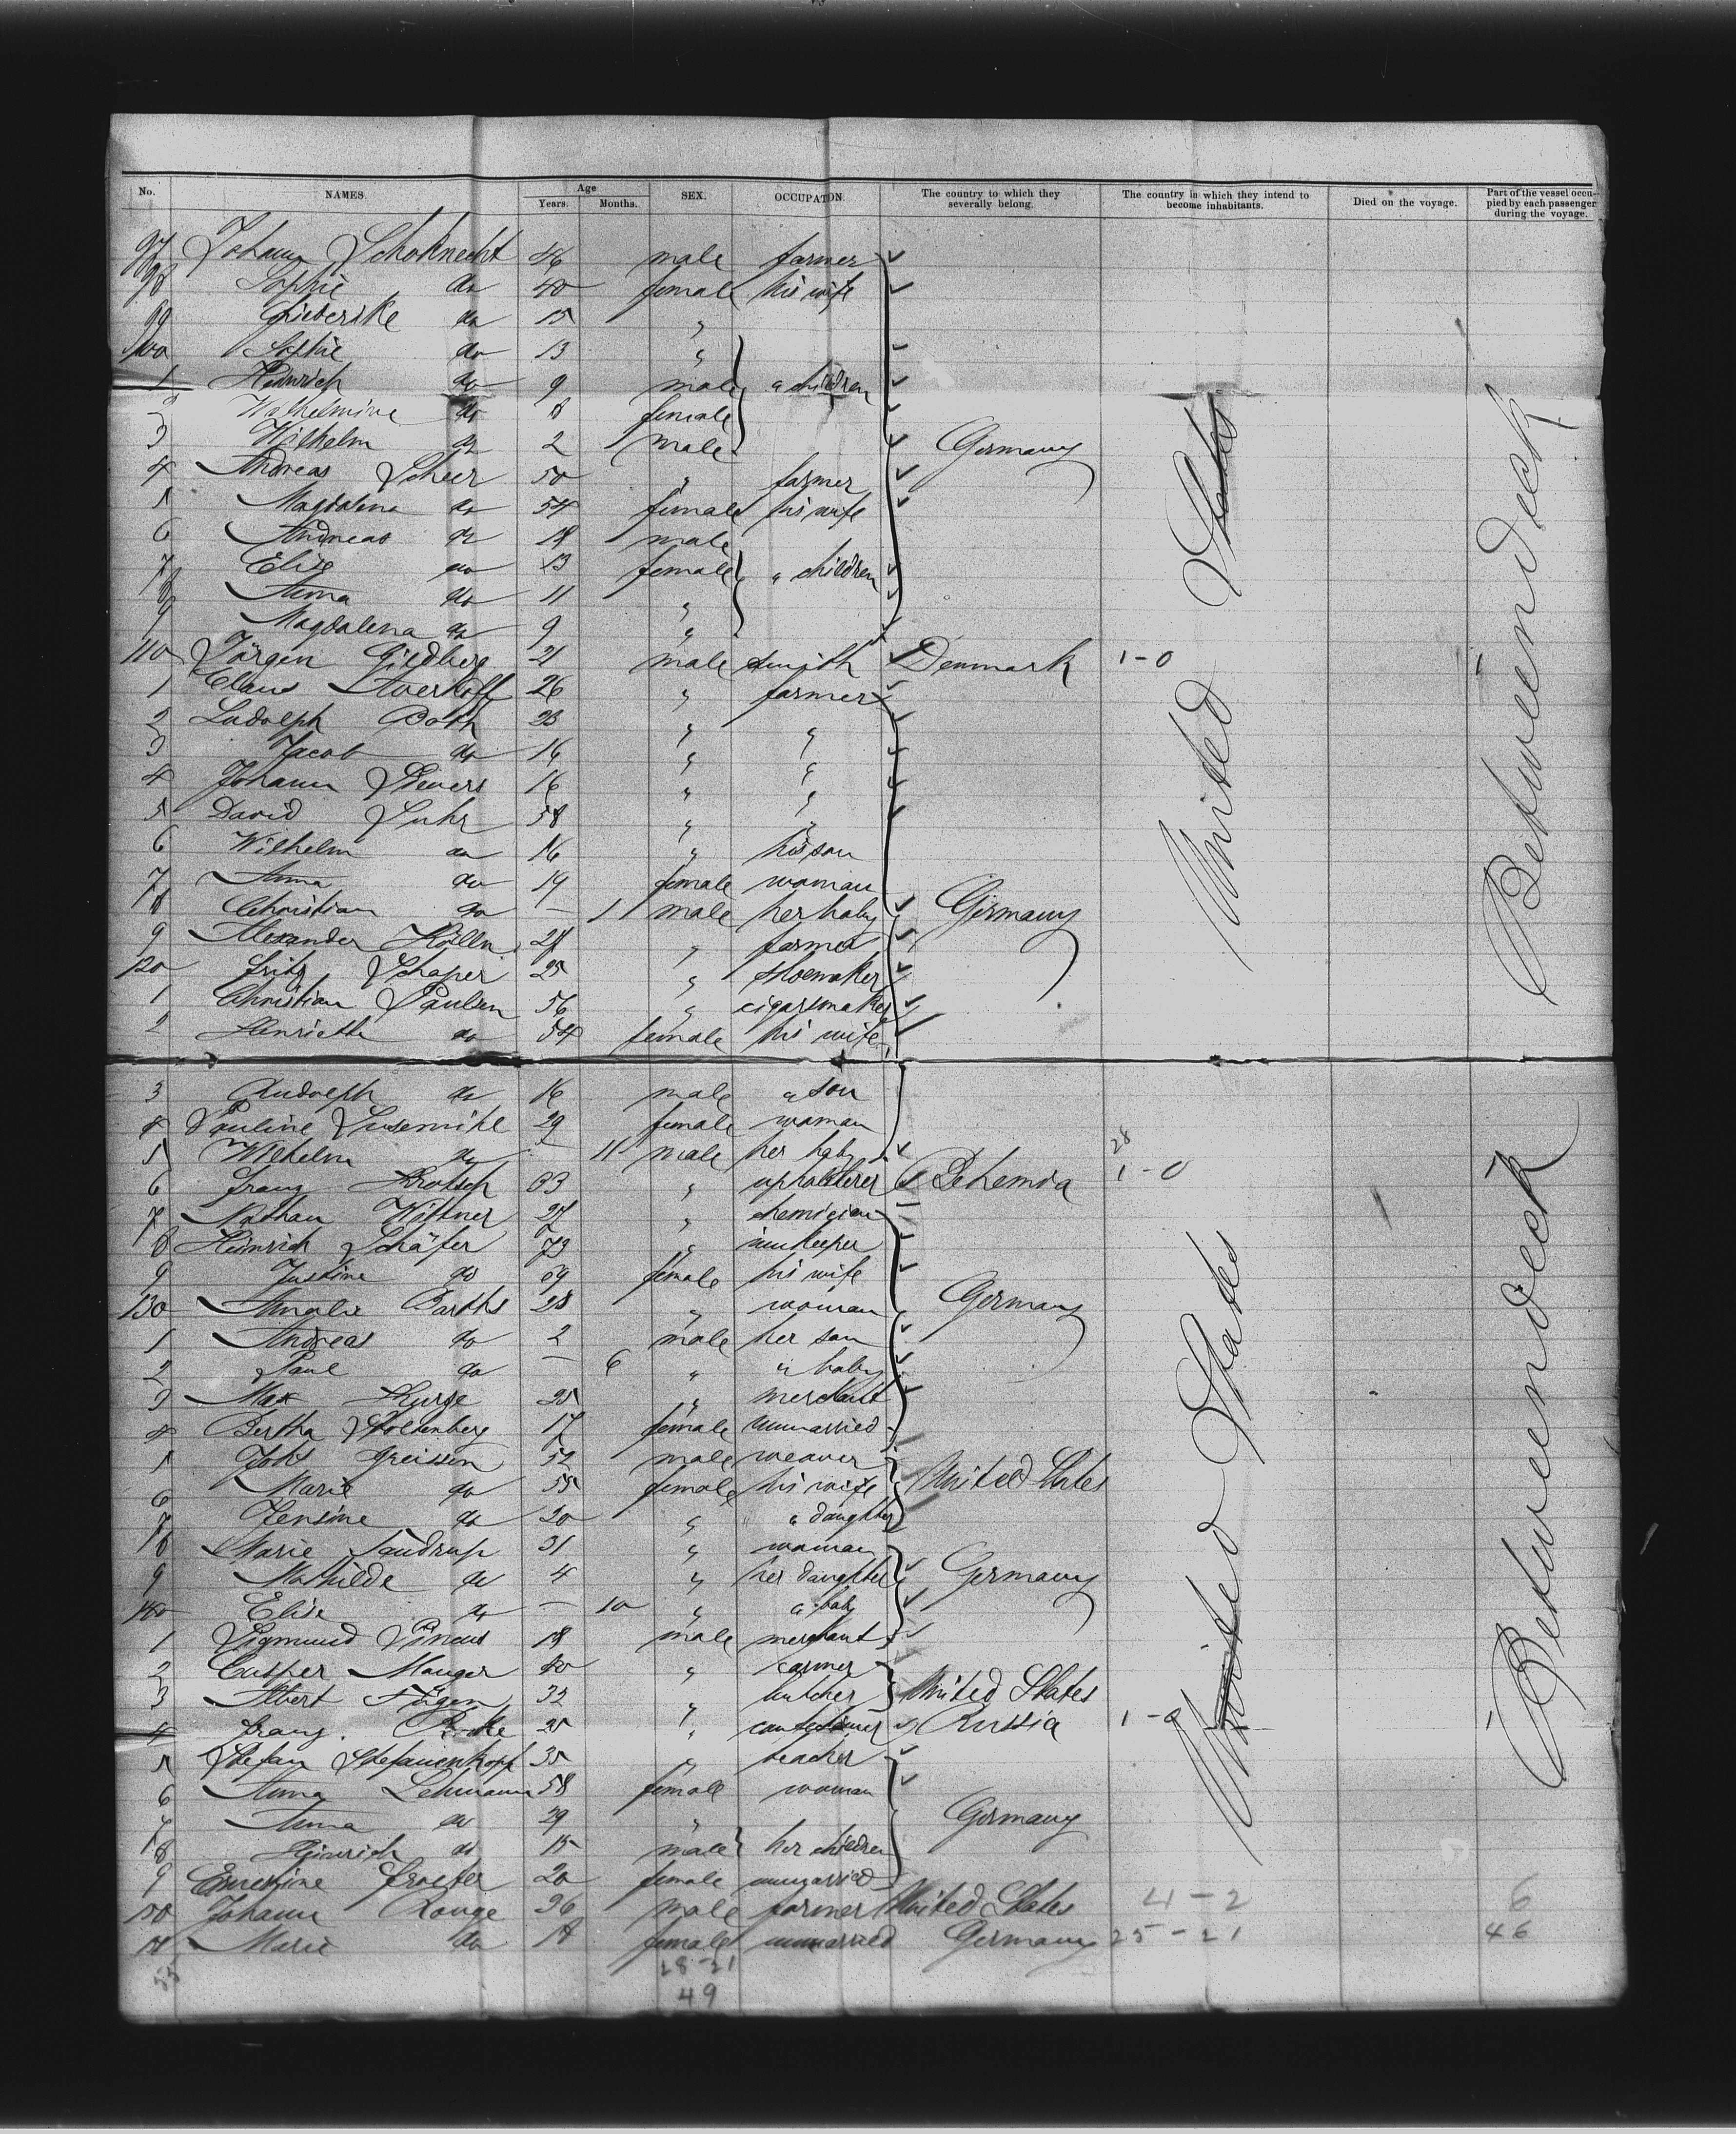 No. NAMES Age Years. Months. SEX. OCCUPATON. The country to which they severally belong. The country in which they intend to become inhabitants. Died on the voyage. Part of the vessel occupied by each passenger during the voyage.
97 Johann Schoknecht 46 male farmer
98 Sophie do 40 female his wife
99 do 15 "
100 Sophie do 13 "
1 Heinrich do 9 male " children
2 Wilhelmine do female
3 Wilhelm do 2 male Germany
4 Andreas Scheer 50 " farmer
5 Magdalena do 54 female his wife
6 Andreas do 18 male
7 Elise do 13 female " children
8 Anna do 11 "
9 Magdalena do 9 "
110 Jörgen 21 male smith Denmark 1-0
1 Claus Averhoff 26 " farmer United States Betweendeck
2 Ludolph Both 23 " "
3 Jacob do 16 " "
4 Johann Sievers 16 " "
5 David Suhr 58 " "
6 Wilhelm do 16 " his son
7 Anna do 19 female woman
8 Christian do — 1 male her baby Germany
9 Alexander Kölln " farmer
120 Fritz Schaper 25 " shoemaker
1 Christian Paulsen 56 " cigarsmaker
2 Henriette do 54 female his wife
3 Rudolph do 16 male " son
4 Pauline Susemihl 29 female woman
5 Wilhelm do - 11 male her baby 28
6 Franz 33 " upholsterer Bohemia 1-0
7 Nathan Wittner 27 " chemician
8 Heinrich Schäfer 73 " innkeeper
9 Justine do 69 female his wife
130 Amalie Barths 28 " woman Germany
1 Andreas do 2 male her son
2 Paul do — 6 " " baby
3 Max 25 " merchant
4 Bertha Stoltenberg 17 female unmarried
5 52 male weaver
6 Marie do 55 female his wife United States
7 Jensine do 20 " " daughter
8 Marie Sandrup 31 " woman
9 Mathilde do 4 " her daughter Germany
140 Elise do — 10 " " baby
1 Sigmund Pincus 18 male merchant
2 Casper Manger 40 " farmer United States Betweendeck
3 Albert 32 " butcher United States
4 Franz 25 " Russia 1-0
5 Stefan 35 " teacher
6 Anna Lehmann 58 female woman
7 Anna do 29 " Germany
8 Heinrich do 15 male her children
9 Ernestine 20 female unmarried
150 Johann Range 36 male farmer United States 4-2 6
Marie do female unmarried Germany 25-21 46
55 28-21
49